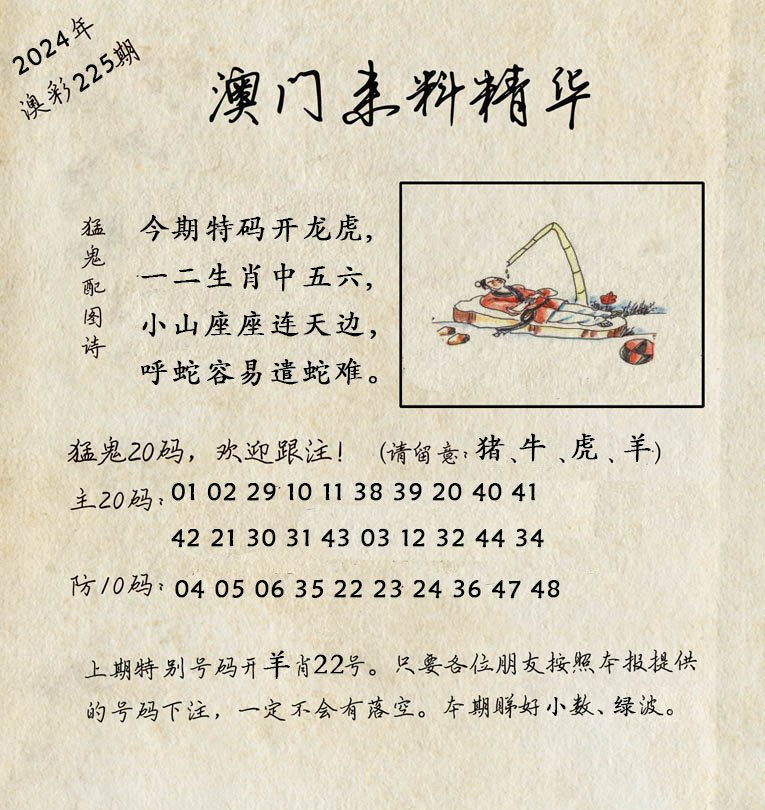 2024年
澳彩225期
澳门来料精华
猛鬼配图诗
今期特码开龙虎,
一二生肖中五六,
小山座座连天边,
呼蛇容易遣蛇难。
猛鬼20码,欢迎跟注! (请留意:猪、牛、虎、羊)
主20码: 01 02 29 10 11 38 39 20 40 41
42 21 30 31 43 03 12 32 44 34
防10码: 04 05 06 35 22 23 24 36 47 48
上期特别号码开羊肖22号。只要各位朋友按照本报提供
的号码下注,一定不会有落空。本期睇好小数、绿波。